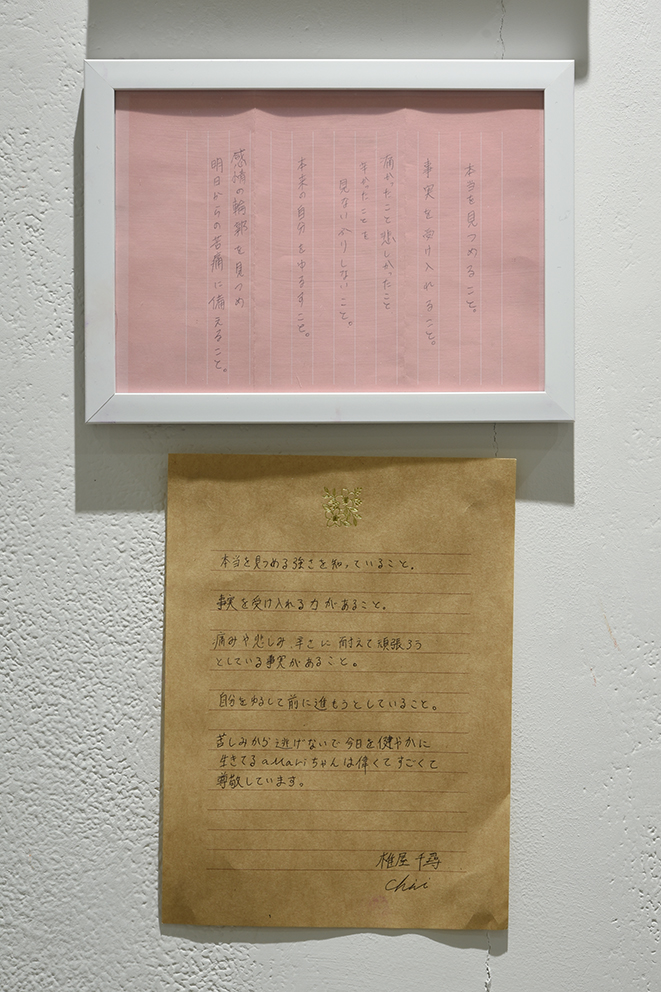 本当を見つめること。
事実を受け入れること。
痛かったこと悲しかったこと
辛かったことを
見ないふりしないこと。
本来の自分をゆるすこと。
感情の輪郭を見つめ
明日からの苦痛に備えること。
本当を見つめる強さを知っていること。
事実を受け入れる力があること。
痛みや悲しみ、辛さに耐えて頑張ろう
としている事実があること。
自分をゆるして前に進もうとしていること。
苦しみから逃げないで今日を健やかに
生きてるaMariちゃんは偉くてすごくて
尊敬しています。
椎屋 千尋
Chii